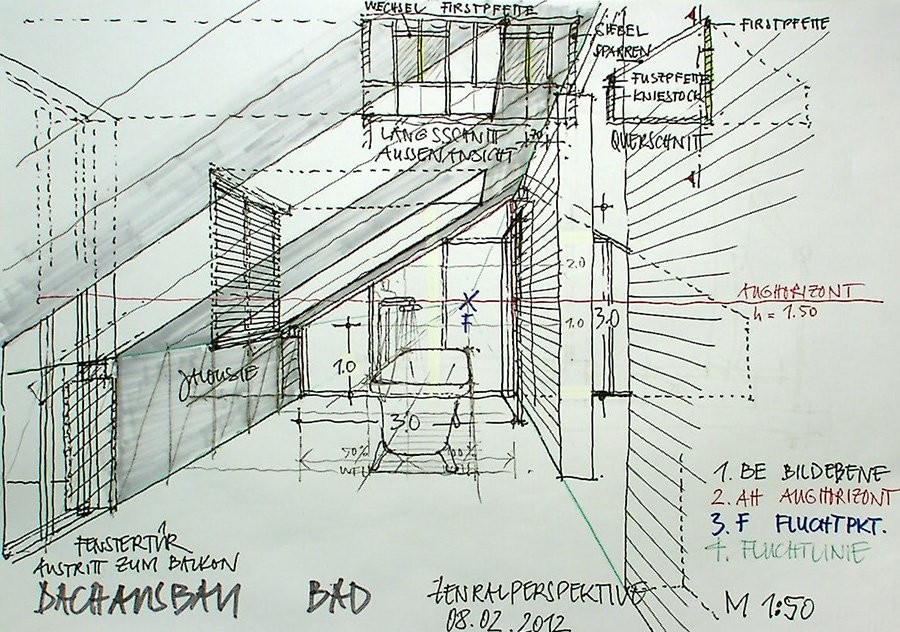 WECHSEL FIRSTPFETTE
GIEBEL
SPARREN
FIRSTPFETTE
FUSZPFETTE
KNIESTOCK
LÄNGSSCHNITT
AUSSENANSICHT
.70
QUERSCHNITT
2.0
1.0
3.0
AUGHORIZONT
h = 1.50
F
1.0
JALOUSIE
3.0
50%
100%
FENSTERTÜR
AUSTRITT ZUM BALKON
DACHAUSBAU BAD
ZENRALPERSPEKTIVE
08.02.2012
1. BE BILDEBENE
2. AH AUGHORIZONT
3. F FLUCHTPKT.
4. FLUCHTLINIE
M 1:50